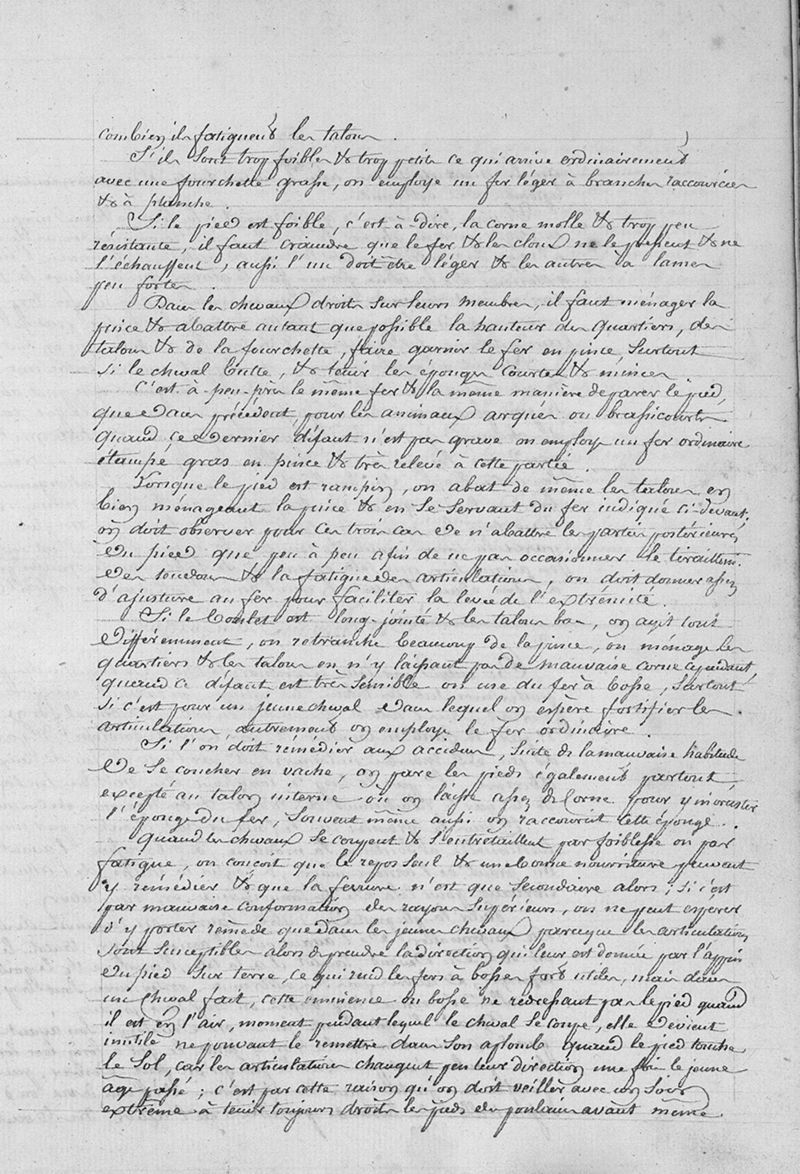 combien ils fatiguent les talons.
S'ils sont trop foibles & trop petits ce qui arrive ordinairement
avec une fourchette grasse, on employe un fer léger à branches raccourcies
& à planche.
Si le pied est foible, c'est à dire, la corne molle & trop peu
résistante, il faut craindre que le fer & les cloux ne le pressent & ne
l'échauffent, aussi l'un doit être léger & les autres à lames
peu fortes.
Dans les chevaux droits sur leurs membres, il faut ménager la
pince & abattre autant que possible la hauteur des quartiers, des
talons & de la fourchette, faire garnir le fer en pince, surtout
si le cheval butte, & tenir les éponges courtes & minces.
C'est à-peu-près le même fer & la même manière de parer le pied,
que dans précédent, pour les animaux arqués ou brassicourts
quand ce dernier défaut n'est pas grave on employe un fer ordinaire
étampé gras en pince & très relevé à cette partie.
Lorsque le pied est rampin, on abat de même les talons en
bien ménageant la pince & en se servant du fer indiqué ci-devant;
on doit observer pour ces trois cas de n'abattre les parties postérieures
du pied que peu à peu afin de ne pas occasionner le tiraillem.
des tendons & la fatigue des articulations, on doit donner assez
d'ajusture au fer pour faciliter la levée de l'extrémité.
Si le boulet est long-jointé & les talons bas, on agit tout
différemment, on retranche beaucoup de la pince, on ménage les
quartiers & les talons en n'y laissant pas de mauvaise corne cependant
quand ce défaut est très sensible on use du fer à bosse, surtout
si c'est pour un jeune cheval dans lequel on espère fortifier les
articulations, autrement on employe le fer ordinaire.
Si l'on doit rémédier aux accidens, suite de la mauvaise habitude
de se coucher en vache, on pare les pieds également partout
excepté au talon interne où on laisse assez de corne pour y incruster
l'éponge du fer, souvent même aussi on raccourcit cette éponge.
Quand les chevaux se coupent & s'entretaillent par foiblesse ou par
fatigue, on conçoit que le repos seul & une bonne nourriture peuvent
y remédier & que la ferrure n'est que secondaire alors; si c'est
par mauvaise conformation des rayons supérieurs, on ne peut espérer
d'y porter remède que dans les jeunes chevaux parceque les articulations
sont susceptibles alors de prendre la direction qui leur est donnée par l'appui
du pied sur terre, ce qui rend les fers à bosses fort utiles, mais dans
un cheval fait, cette éminence ou bosse ne redressant pas le pied quand
il est en l'air, moment pendant lequel le cheval se coupe, elle devient
inutile ne pouvant le remettre dans son aplomb quand le pied touche
le sol, car les articulations changent peu leur direction une fois le jeune
âge passé; c'est par cette raison qu'on doit veiller avec un soin
extrême à tenir toujours droits les pieds des poulains avant même